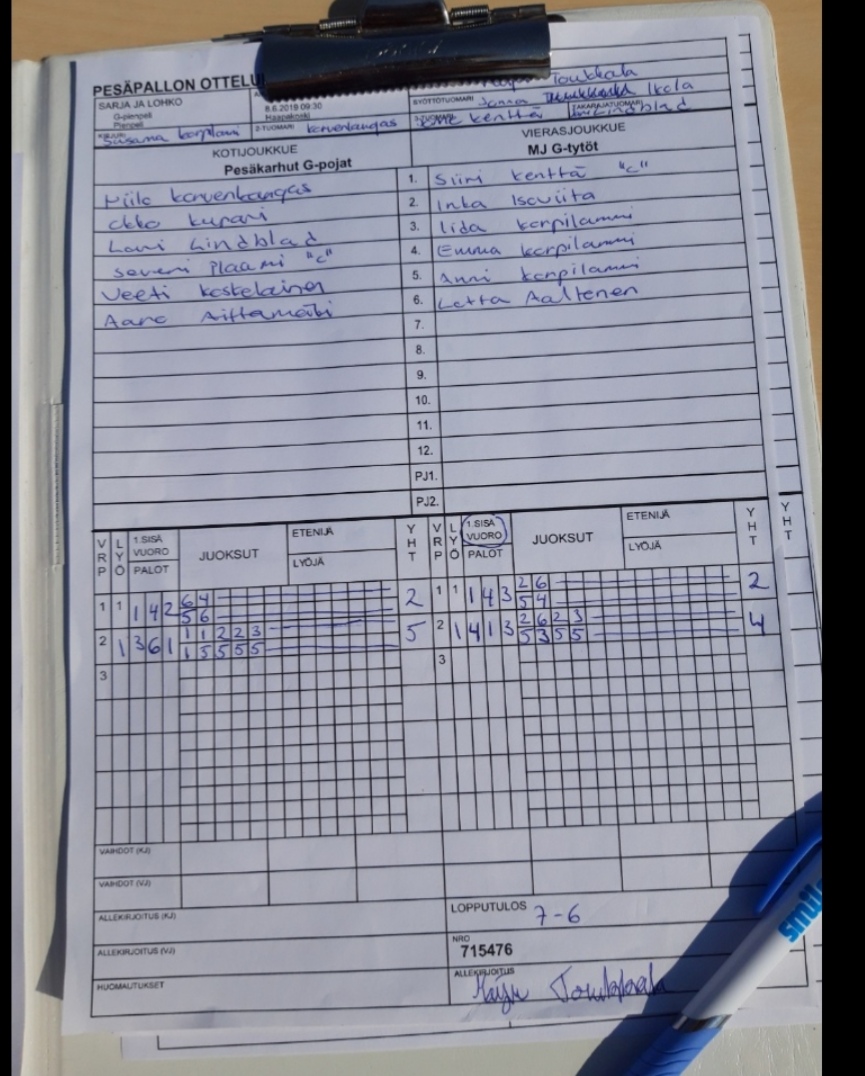 PESÄPALLON OTTELU
SARJA JA LOHKO
G-pienpeli
Pienpeli
8.6.2019 09:30
Haapakoski
Toukkala
SYÖTTÖTUOMARI Ikola
Susanna Korpilammi 2-TUOMARI Korvenkangas 3-TUOMARI Kenttä TAKARAJATUOMARI Lindblad
KOTIJOUKKUE VIERASJOUKKUE
Pesäkarhut G-pojat MJ G-tytöt
Niilo Korvenkangas 1. Siiri Kenttä "c"
Okko Kupari 2. Inka Isoviita
Lauri Lindblad 3. Iida Korpilammi
Severi Plaami "c" 4. Emma Korpilammi
Veeti Koskelainen 5. Anni Korpilammi
Aaro Aittamäki 6. Lotta Aaltonen
7.
8.
9.
10.
11.
12.
PJ1.
PJ2.
VRP LYÖ 1.SISÄ VUORO PALOT JUOKSUT ETENIJÄ LYÖJÄ YHT VRP LYÖ 1.SISÄ VUORO PALOT JUOKSUT ETENIJÄ LYÖJÄ YHT YHT
1 1 1 4 2 6 4 2 1 1 1 4 3 2 6 2
5 6 5 4
2 1 3 6 1 1 1 2 2 3 5 2 1 4 1 3 2 6 2 3 4
1 5 5 5 5 5 3 5 5
3 3
VAIHDOT (KJ)
VAIHDOT (VJ)
ALLEKIRJOITUS (KJ) LOPPUTULOS 7-6
ALLEKIRJOITUS (VJ) NRO 715476
HUOMAUTUKSET ALLEKIRJOITUS Maiju Toukkala
smile